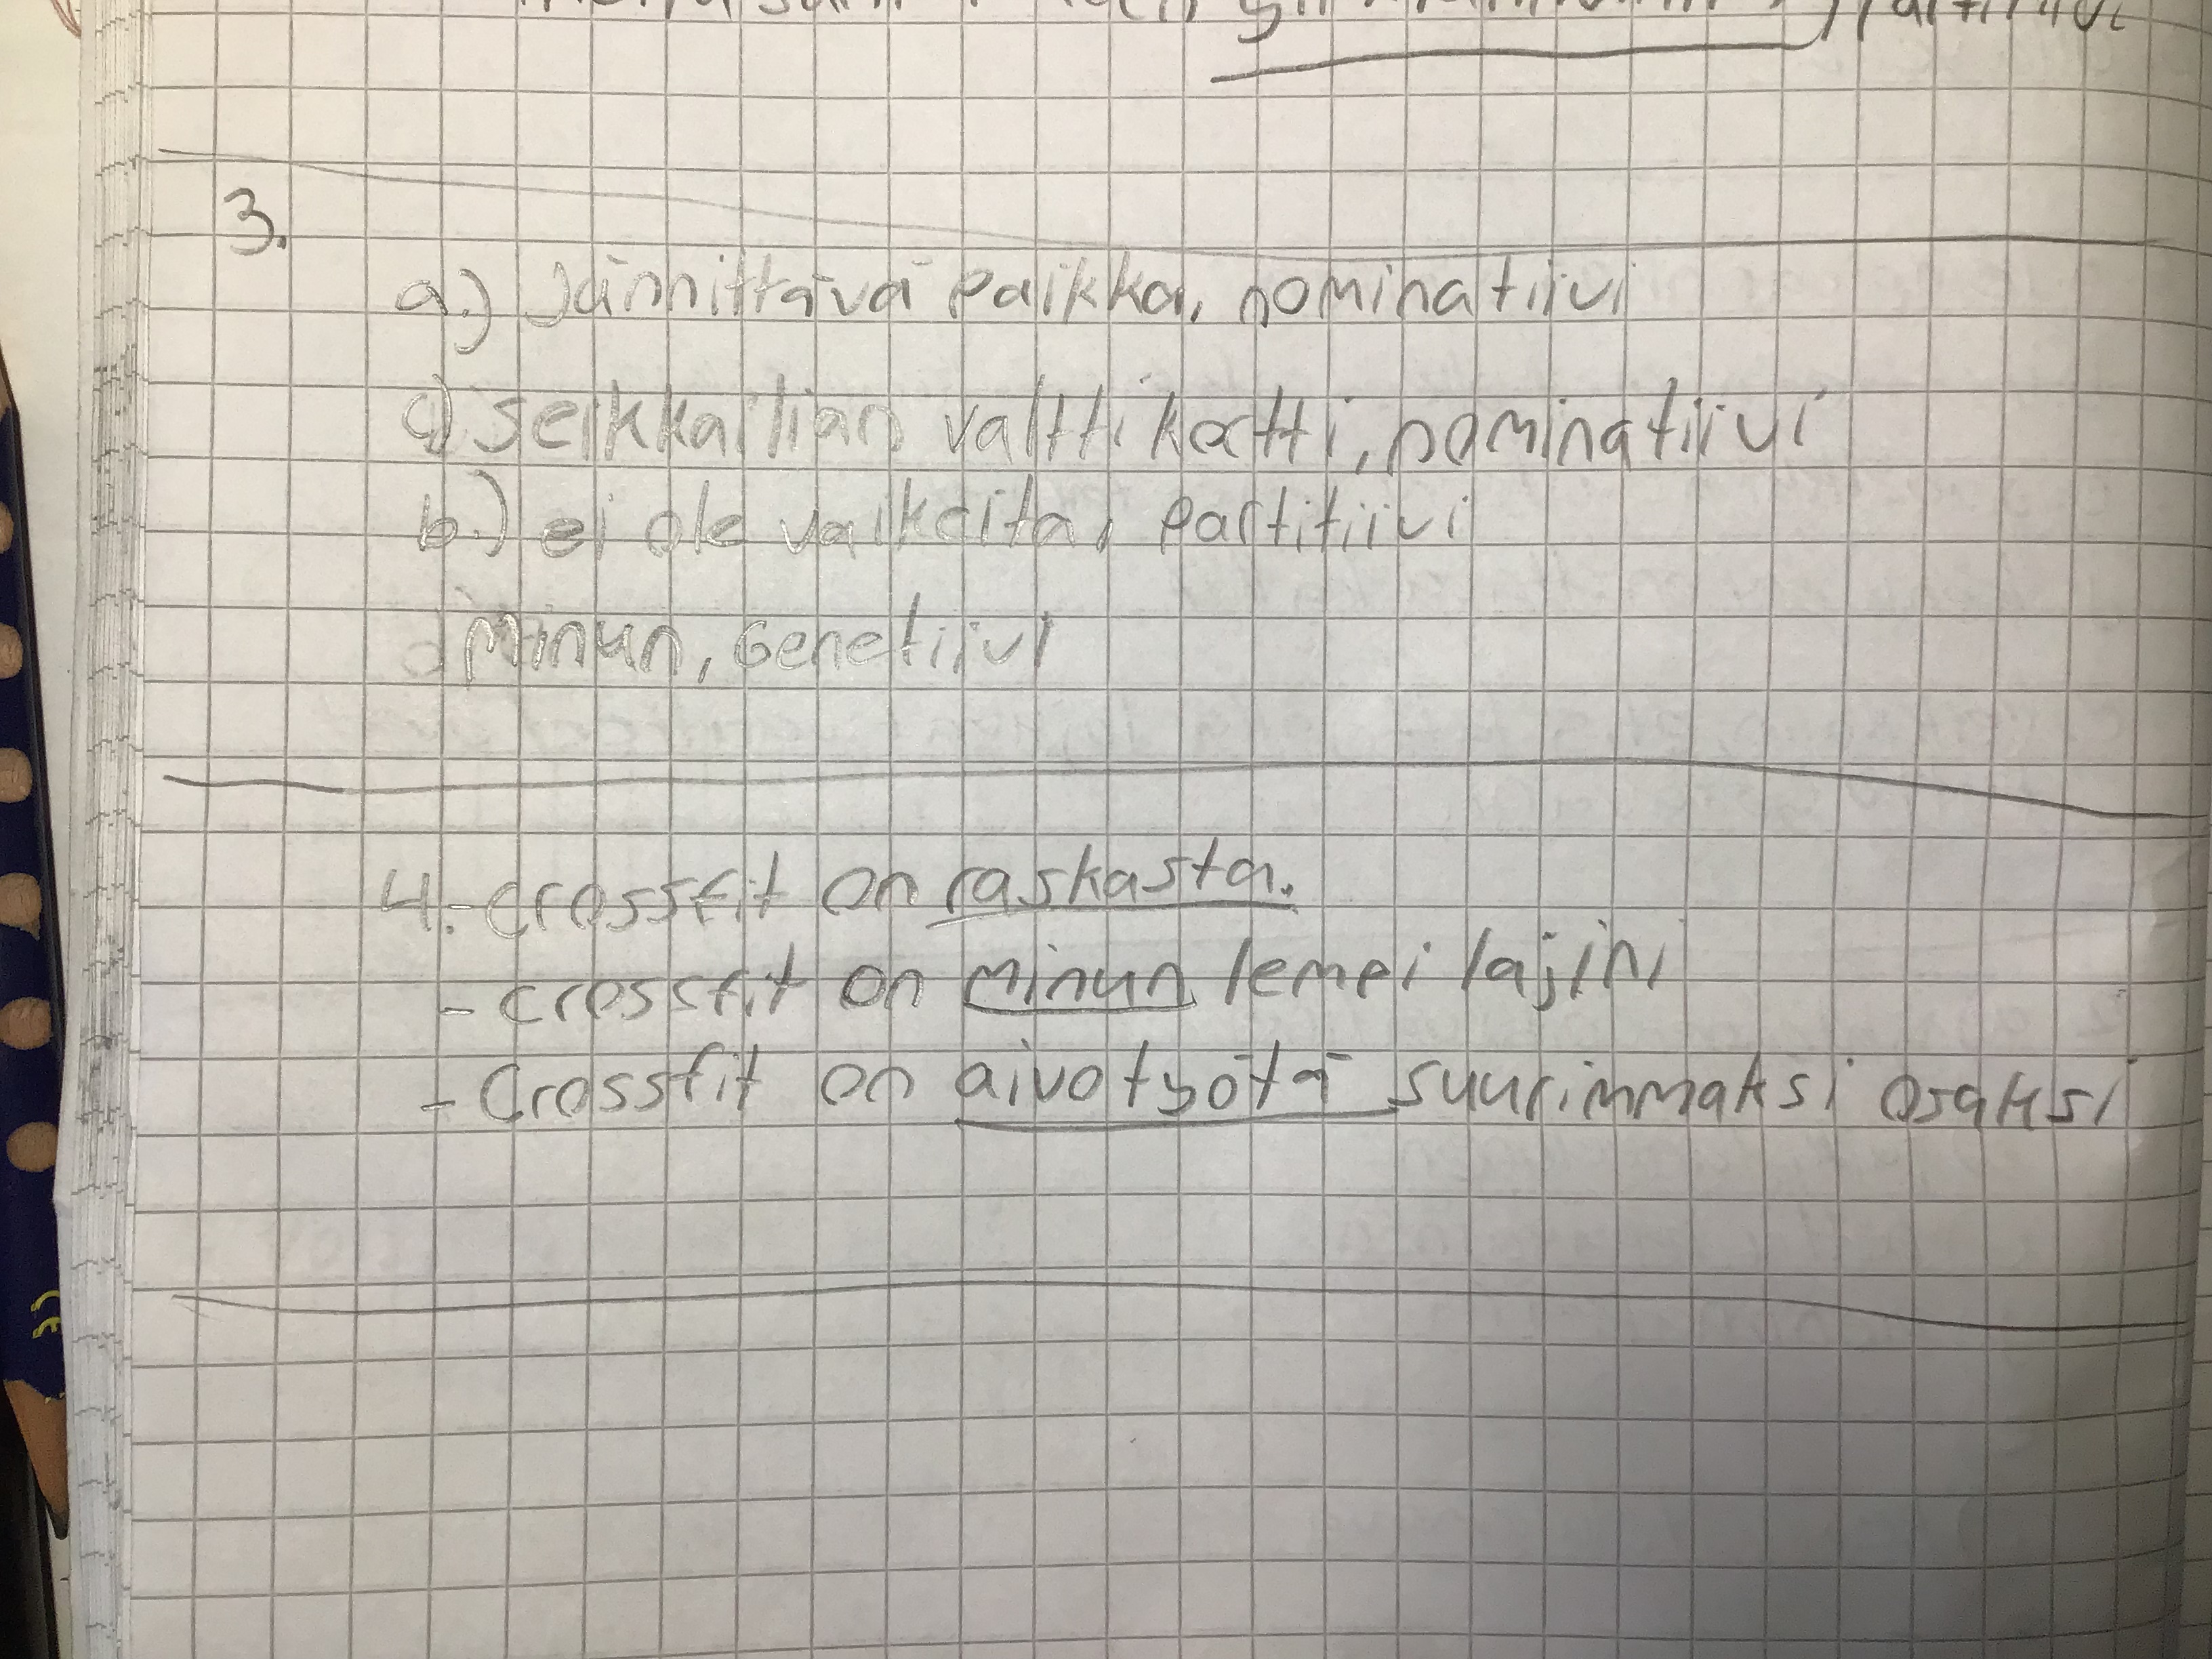 partitiivi
3.
a.) Jännittävä paikka, nominatiivi
c) seikkailian valttikortti, nominatiivi
b.) ei ole vaikeita, partitiivi
d) Minun, Genetiivi
4. -crossfit on raskasta.
- crossfit on minun lempi lajini
- Crossfit on aivotyötä suurimmaksi osaksi